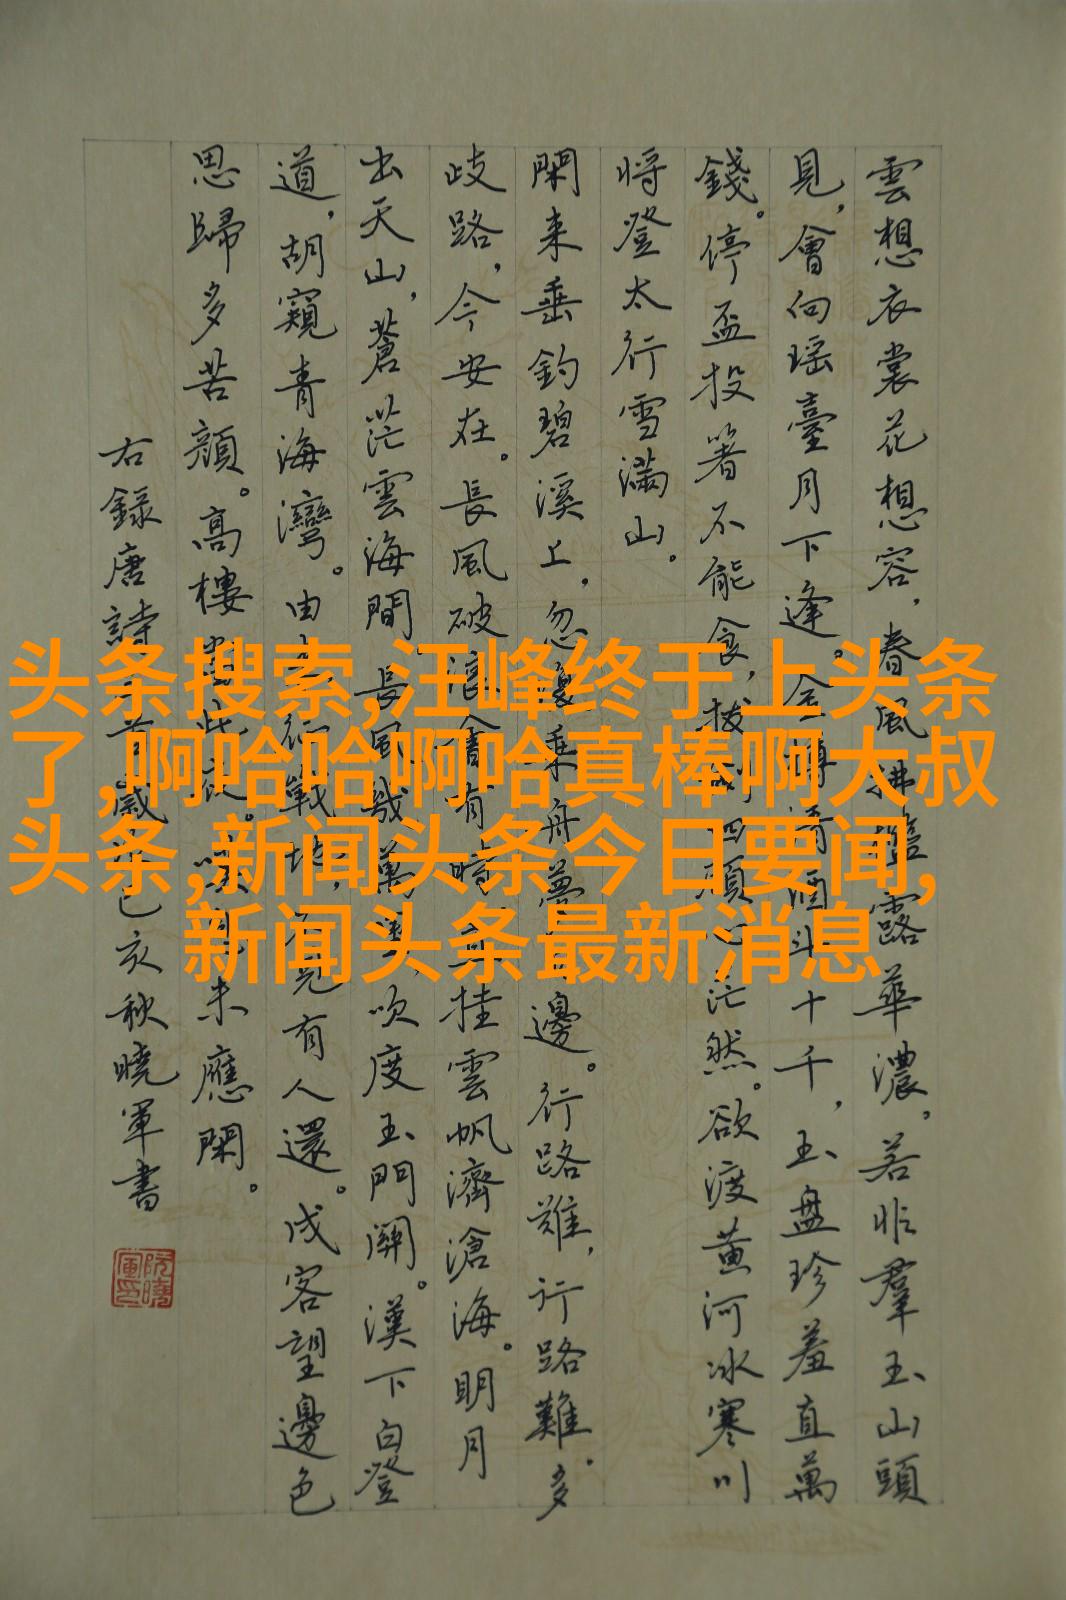 雲想衣裳花想容，春風拂檻露華濃，若非羣玉山頭
見，會向瑶臺月下逢。金樽清酒斗十千，玉盘珍羞直萬
錢。停盃投箸不能食，拔劍四顧心茫然。欲渡黄河冰寒川
将登太行雪滿山。
閑来垂釣碧溪上，忽復乘舟夢日邊。行路難，行路難。多
歧路，今安在。長風破浪會有時直挂雲帆濟滄海。明月
出天山，蒼茫雲海間。長風幾萬里，吹度玉門關。漢下白登
道，胡窺青海灣。由来征戰地，不見有人還。戍客望邊色
思歸多苦顔。高樓當此夜。嘆息未應閑。
右録唐詩首歲己亥秋曉軍書
阮曉軍印
头条搜索,汪峰终于上头条
了,啊哈哈啊哈真棒啊大叔
头条,新闻头条今日要闻,
新闻头条最新消息